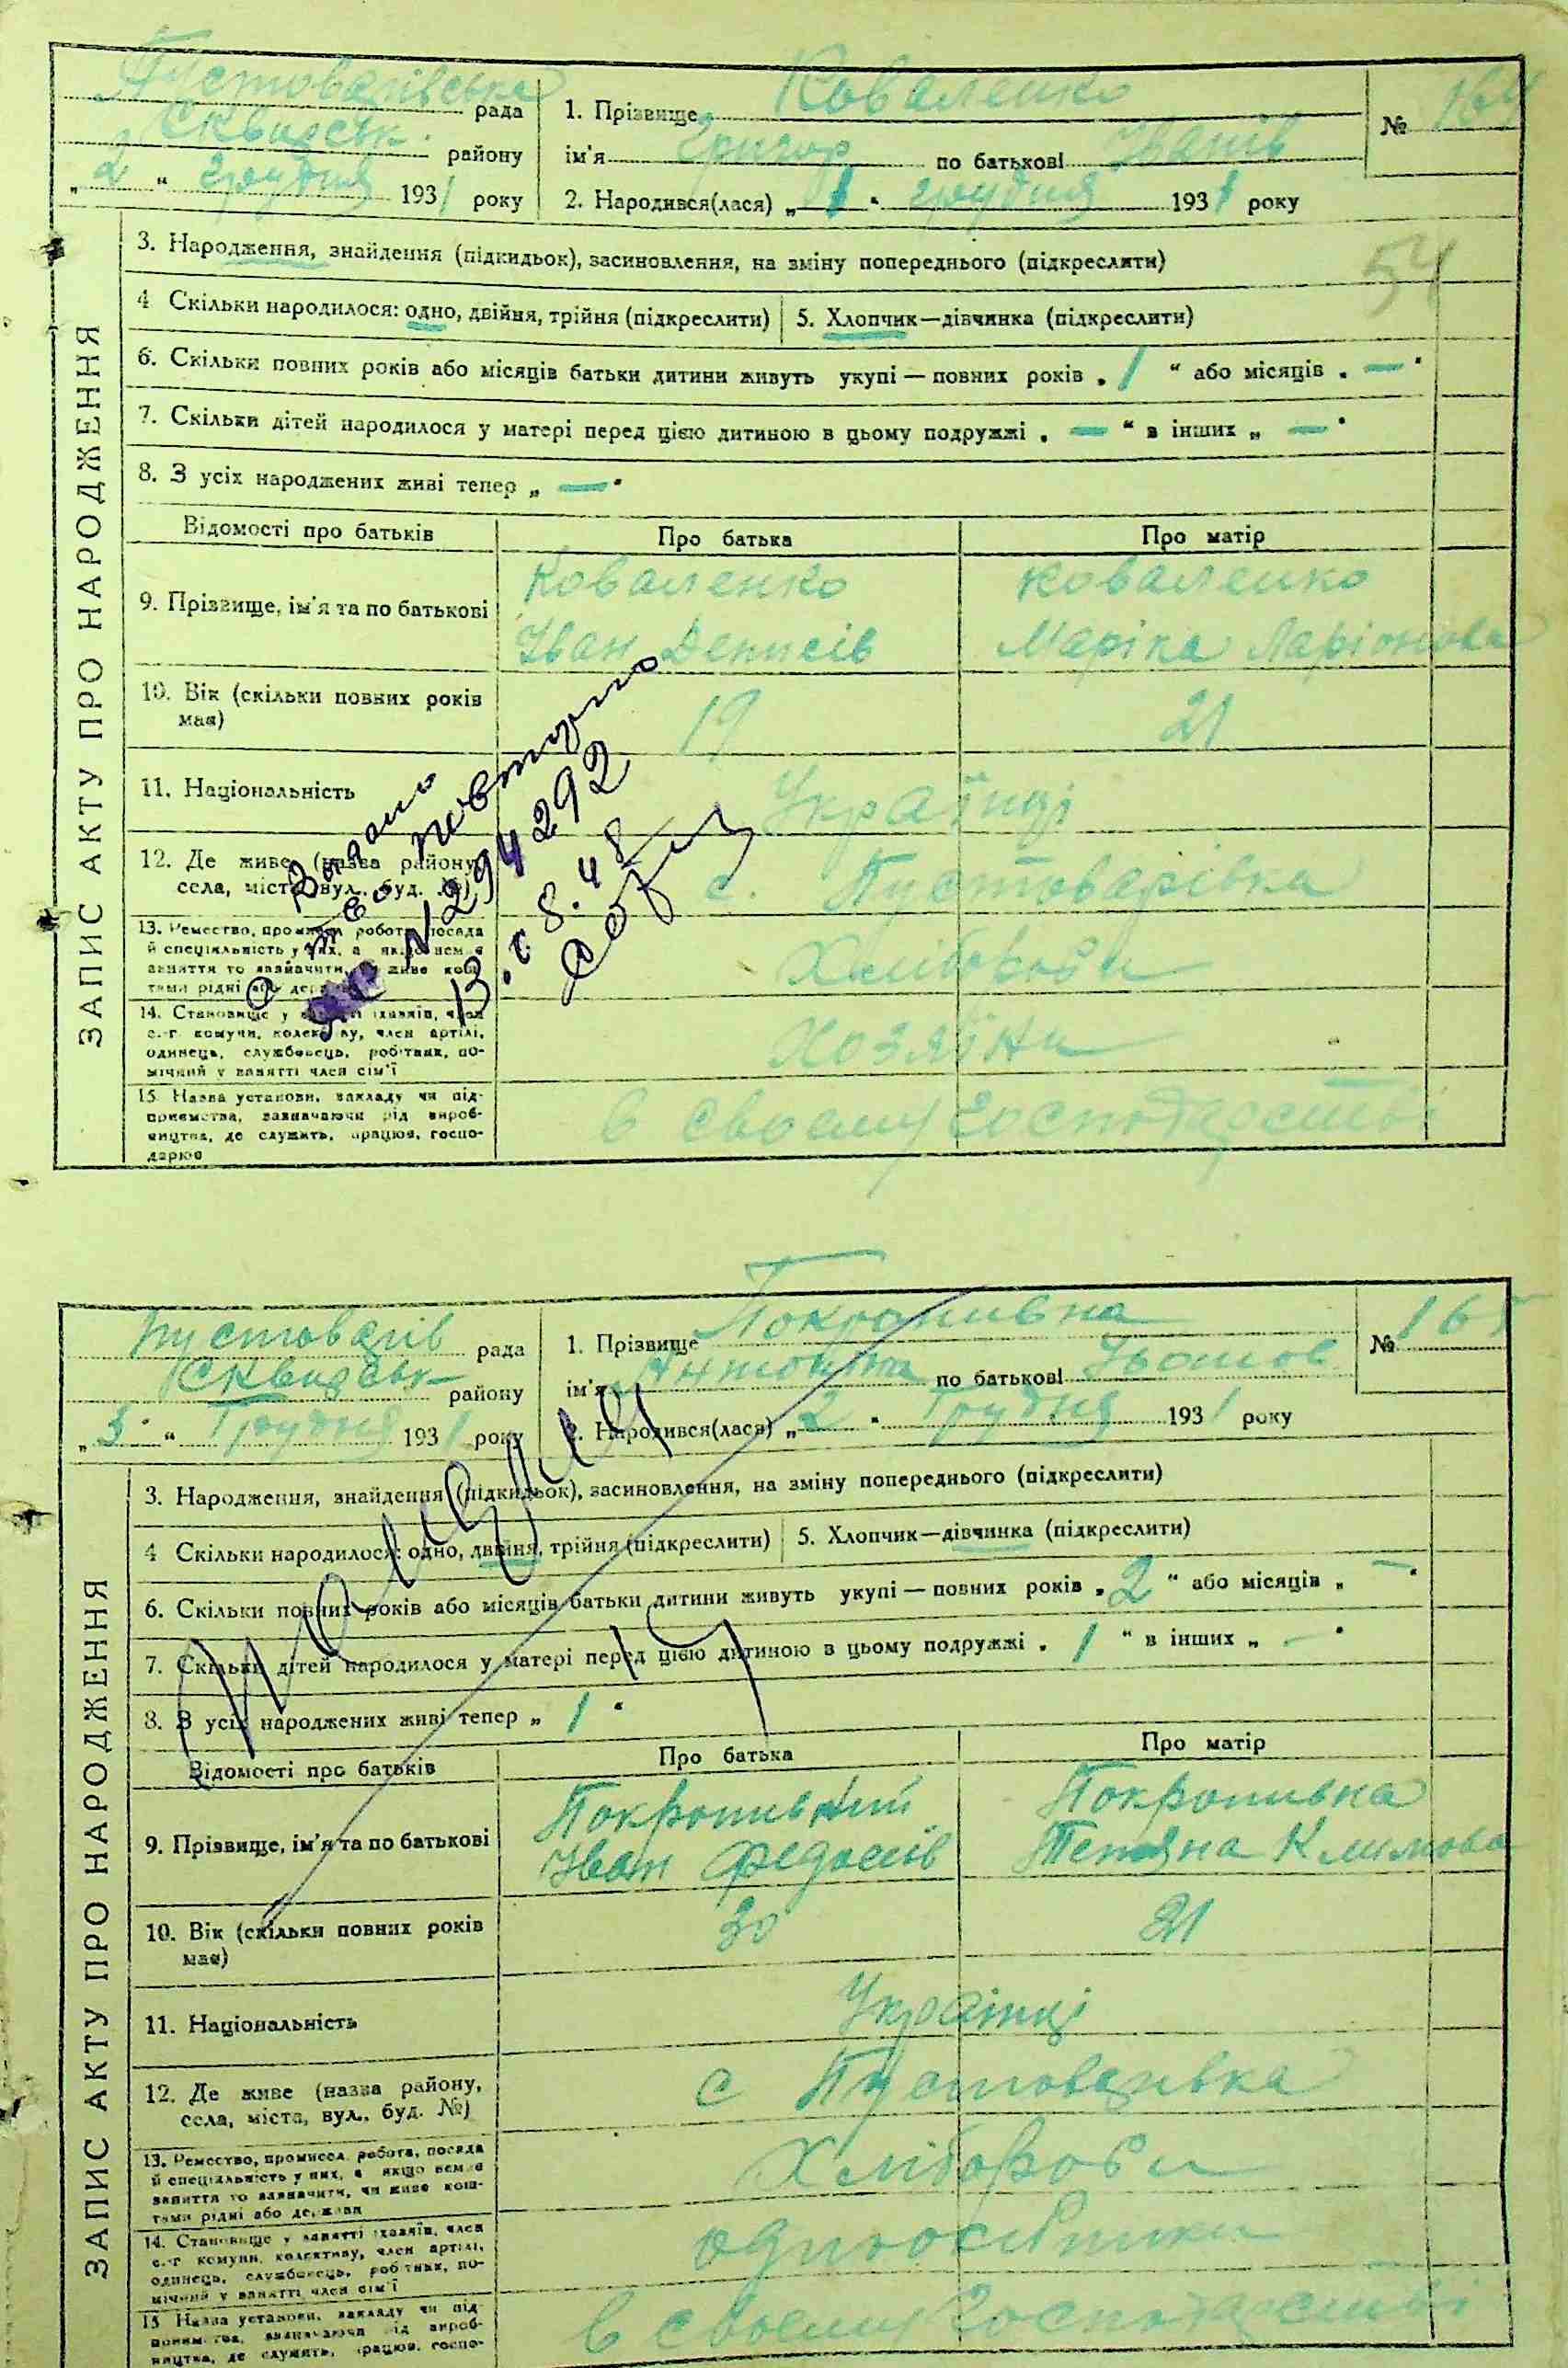 Пустоварівська рада
Сквирськ. району
„2“ грудня 1931 року
1. Прізвище Коваленко
ім'я Григор по батькові Іванів
2. Народився(лася) „1“ грудня 1931 року
№ 164
54
ЗАПИС АКТУ ПРО НАРОДЖЕННЯ
3. Народження, знайдення (підкидьок), засиновлення, на зміну попереднього (підкреслити)
4 Скільки народилося: одно, двійня, трійня (підкреслити)
5. Хлопчик—дівчинка (підкреслити)
6. Скільки повних років або місяців батьки дитини живуть укупі — повних років „1“ або місяців „—“
7. Скільки дітей народилося у матері перед цією дитиною в цьому подружжі „—“ в інших „—“
8. З усіх народжених живі тепер „—“
Відомості про батьків Про батька Про матір
9. Прізвище, ім'я та по батькові
Коваленко
Іван Денисів
Коваленко
Маріка Ларіонова
10. Вік (скільки повних років
має)
19 21
11. Національність Українці
12. Де живе (назва району,
села, міста, вул., буд. №)
с. Пустоварівка
13. Ремество, промисел, робота, посада
й спеціяльність у них, а якщо нема
заняття то зазначити, чи живе кош-
тами рідні або держави
Хлібороби
14. Становище у занятті: хазяїн, член
с.-г. комуни, колективу, член артілі,
одинець, службовець, робітник, по-
мічний у занятті член сім'ї
Хозяїни
15 Назва установи, закладу чи під-
приємства, зазначаючи рід вироб-
ництва, де служить, працює, госпо-
дарює
в своему господарстві
Видано
повторно
№ 294292
13.8.48
Пустоварів рада
Сквирськ району
„3“ Грудня 1931 року
1. Прізвище Покропивна
ім'я Антоніна по батькові Іванов
2. Народився(лася) „2“ Грудня 1931 року
№ 165
ЗАПИС АКТУ ПРО НАРОДЖЕННЯ
3. Народження, знайдення (підкидьок), засиновлення, на зміну попереднього (підкреслити)
4 Скільки народилося: одно, двійня, трійня (підкреслити)
5. Хлопчик—дівчинка (підкреслити)
6. Скільки повних років або місяців батьки дитини живуть укупі — повних років „2“ або місяців „—“
7. Скільки дітей народилося у матері перед цією дитиною в цьому подружжі „1“ в інших „—“
8. З усіх народжених живі тепер „1“
Відомості про батьків Про батька Про матір
9. Прізвище, ім'я та по батькові
Покропивний
Іван Федосіів
Покропивна
Тетяна Климова
10. Вік (скільки повних років
має)
30 21
11. Національність Українці
12. Де живе (назва району,
села, міста, вул., буд. №)
с Пустоварівка
13. Ремество, промисел, робота, посада
й спеціяльність у них, а якщо нема
заняття то зазначити, чи живе кош-
тами рідні або держави
Хлібороби
14. Становище у занятті: хазяїн, член
с.-г. комуни, колективу, член артілі,
одинець, службовець, робітник, по-
мічний у занятті член сім'ї
одноосібники
15 Назва установи, закладу чи під-
приємства, зазначаючи рід вироб-
ництва, де служить, працює, госпо-
в своему господарстві